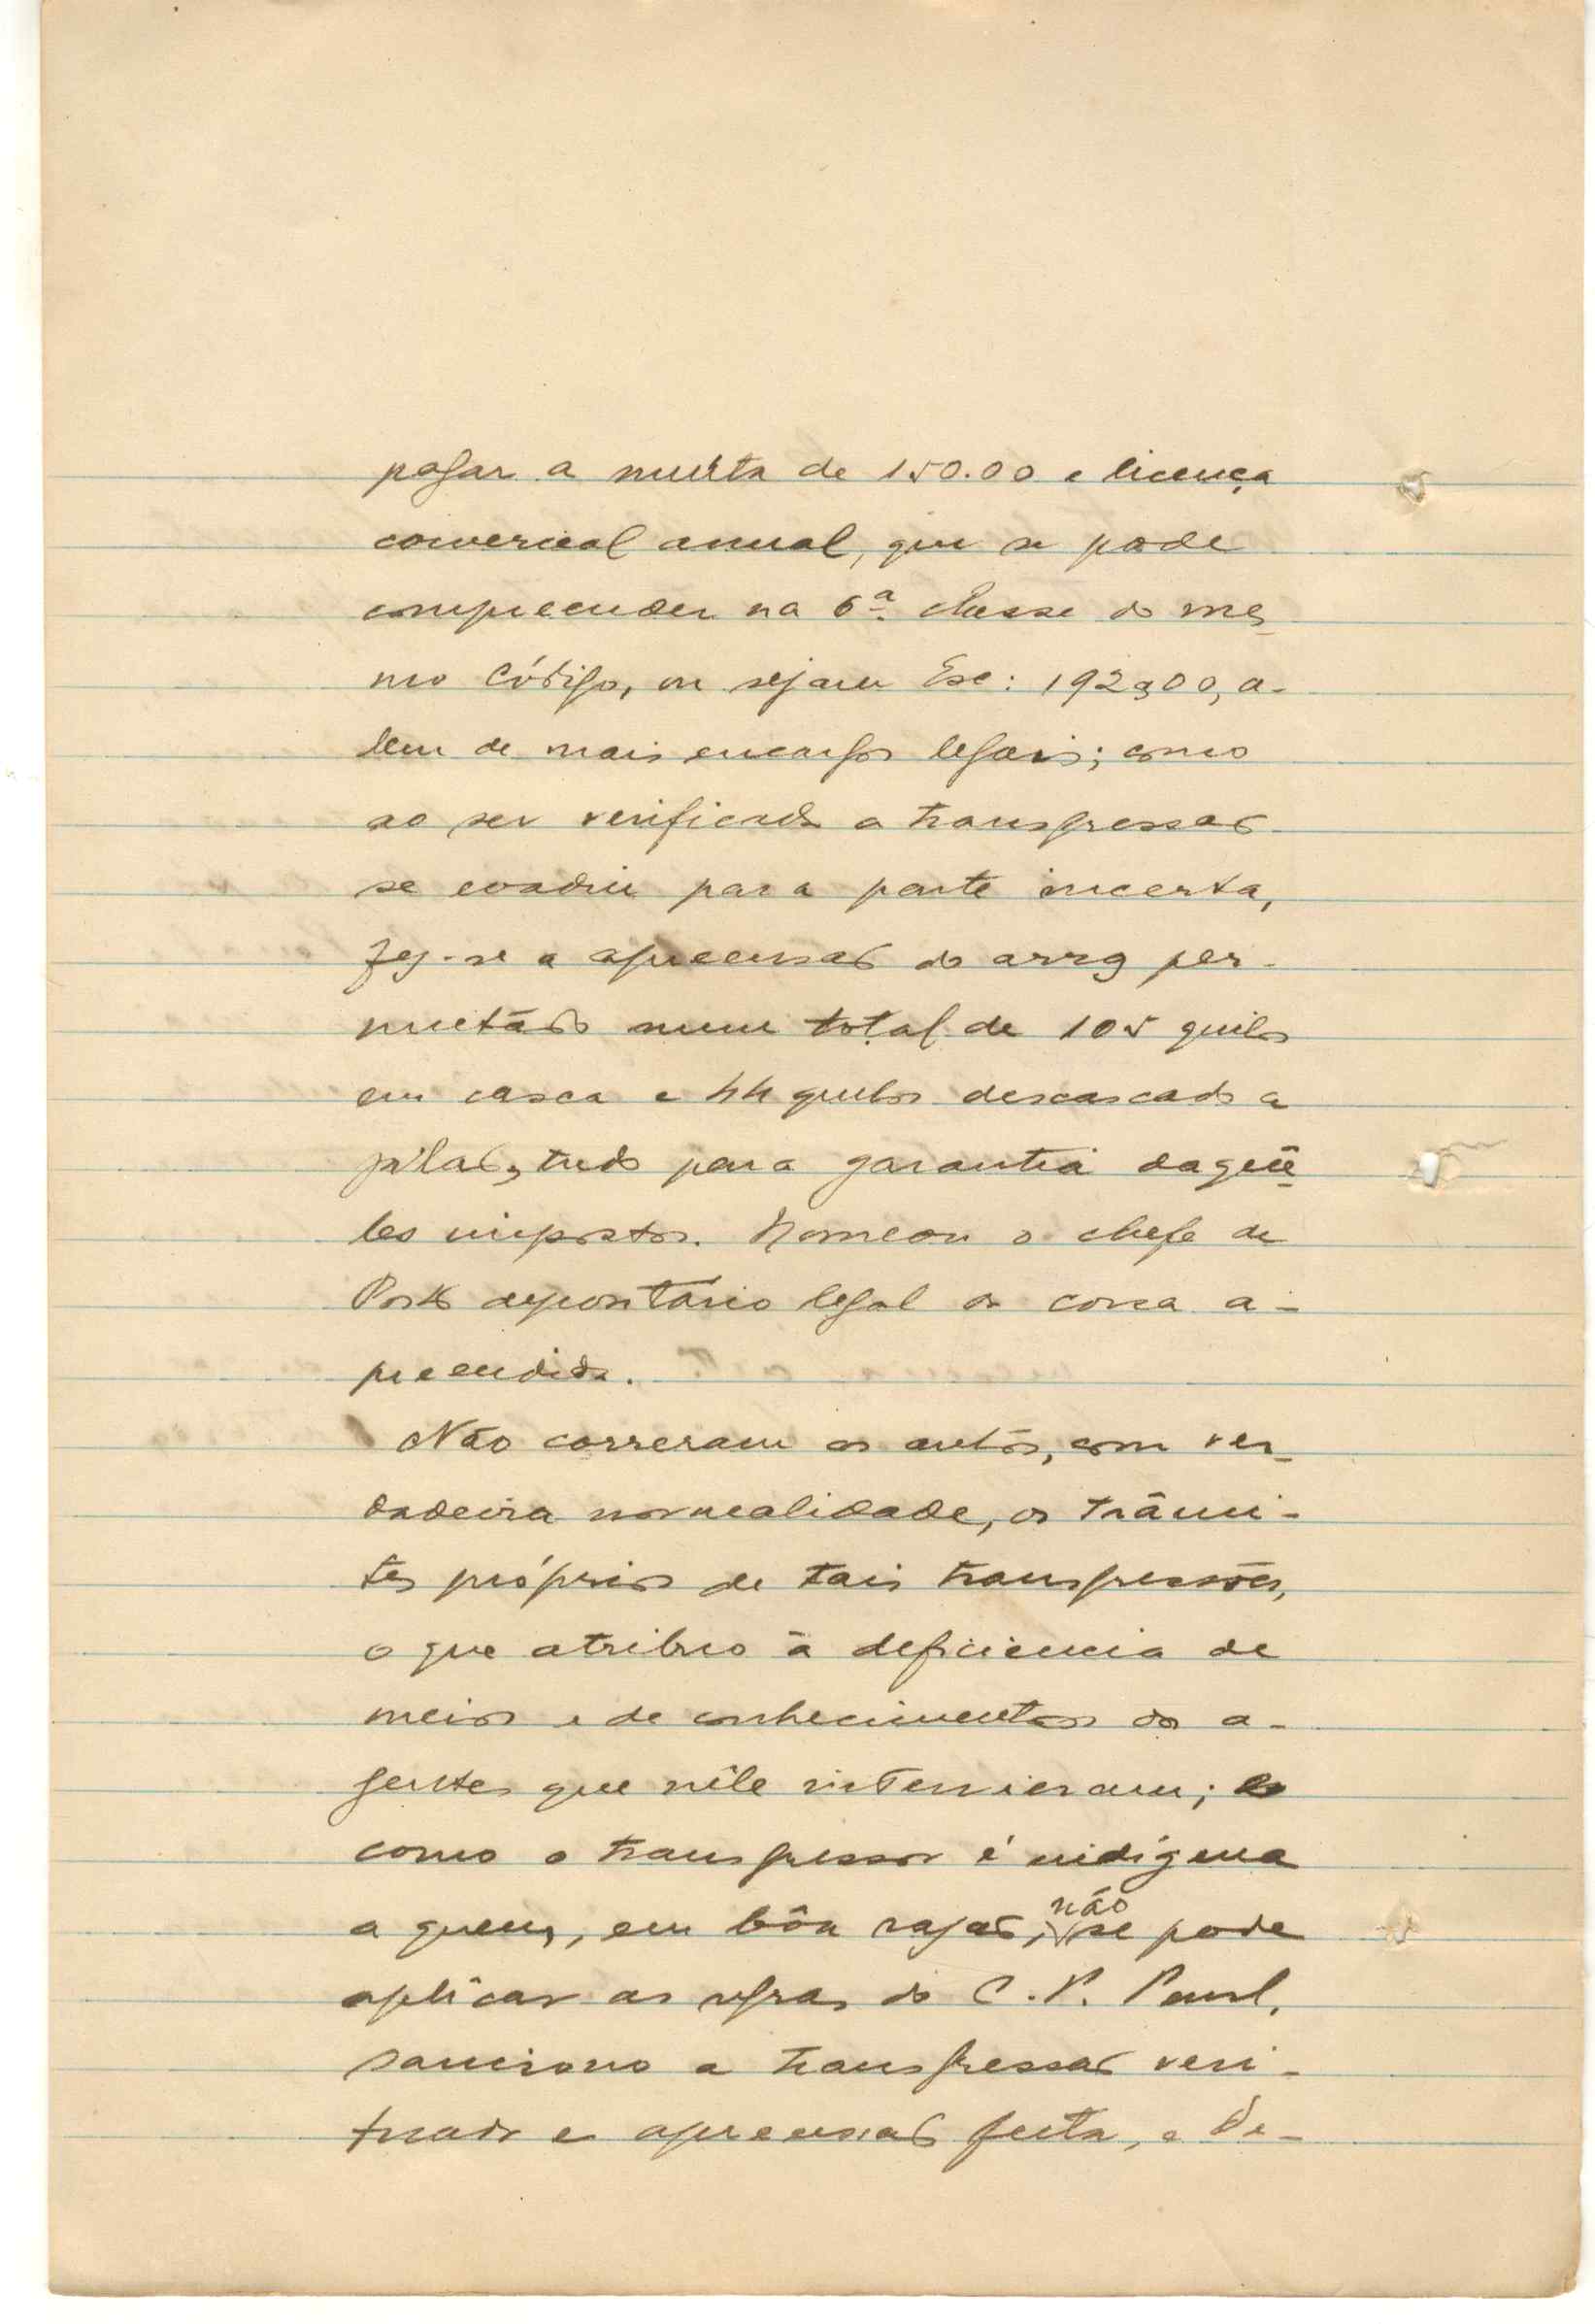 pagar a multa de 150.00 e licença
comercial anual, que se pode
compreender na 6ª classe do mes
mo Código, ou sejam Esc: 192$00, a-
lem de mais encargos legais; como
ao ser verificada a transgressão
se evadiu para parte incerta,
fez-se a apreensão do arroz per-
mutádo num total de 105 quilos
em casca e 44 quilos descascado a
pilão, tudo para garantia daquê
les impostos. Nomeou o chefe de
Posto depositário legal da coisa a-
preendida.
Não correram os autos, com ver
dadeira normalidade, os trâmi-
tes próprios de tais transgressões,
o que atribuo à deficiencia de
meios e de conhecimentos dos a-
gentes que nêle intervieram; e
como o transgressor é indígena
a quem, em bôa razão, não se pode
aplicar as regras do C. P. Penal,
sanciono a transgressão veri-
ficada e apreensão feita, e De-